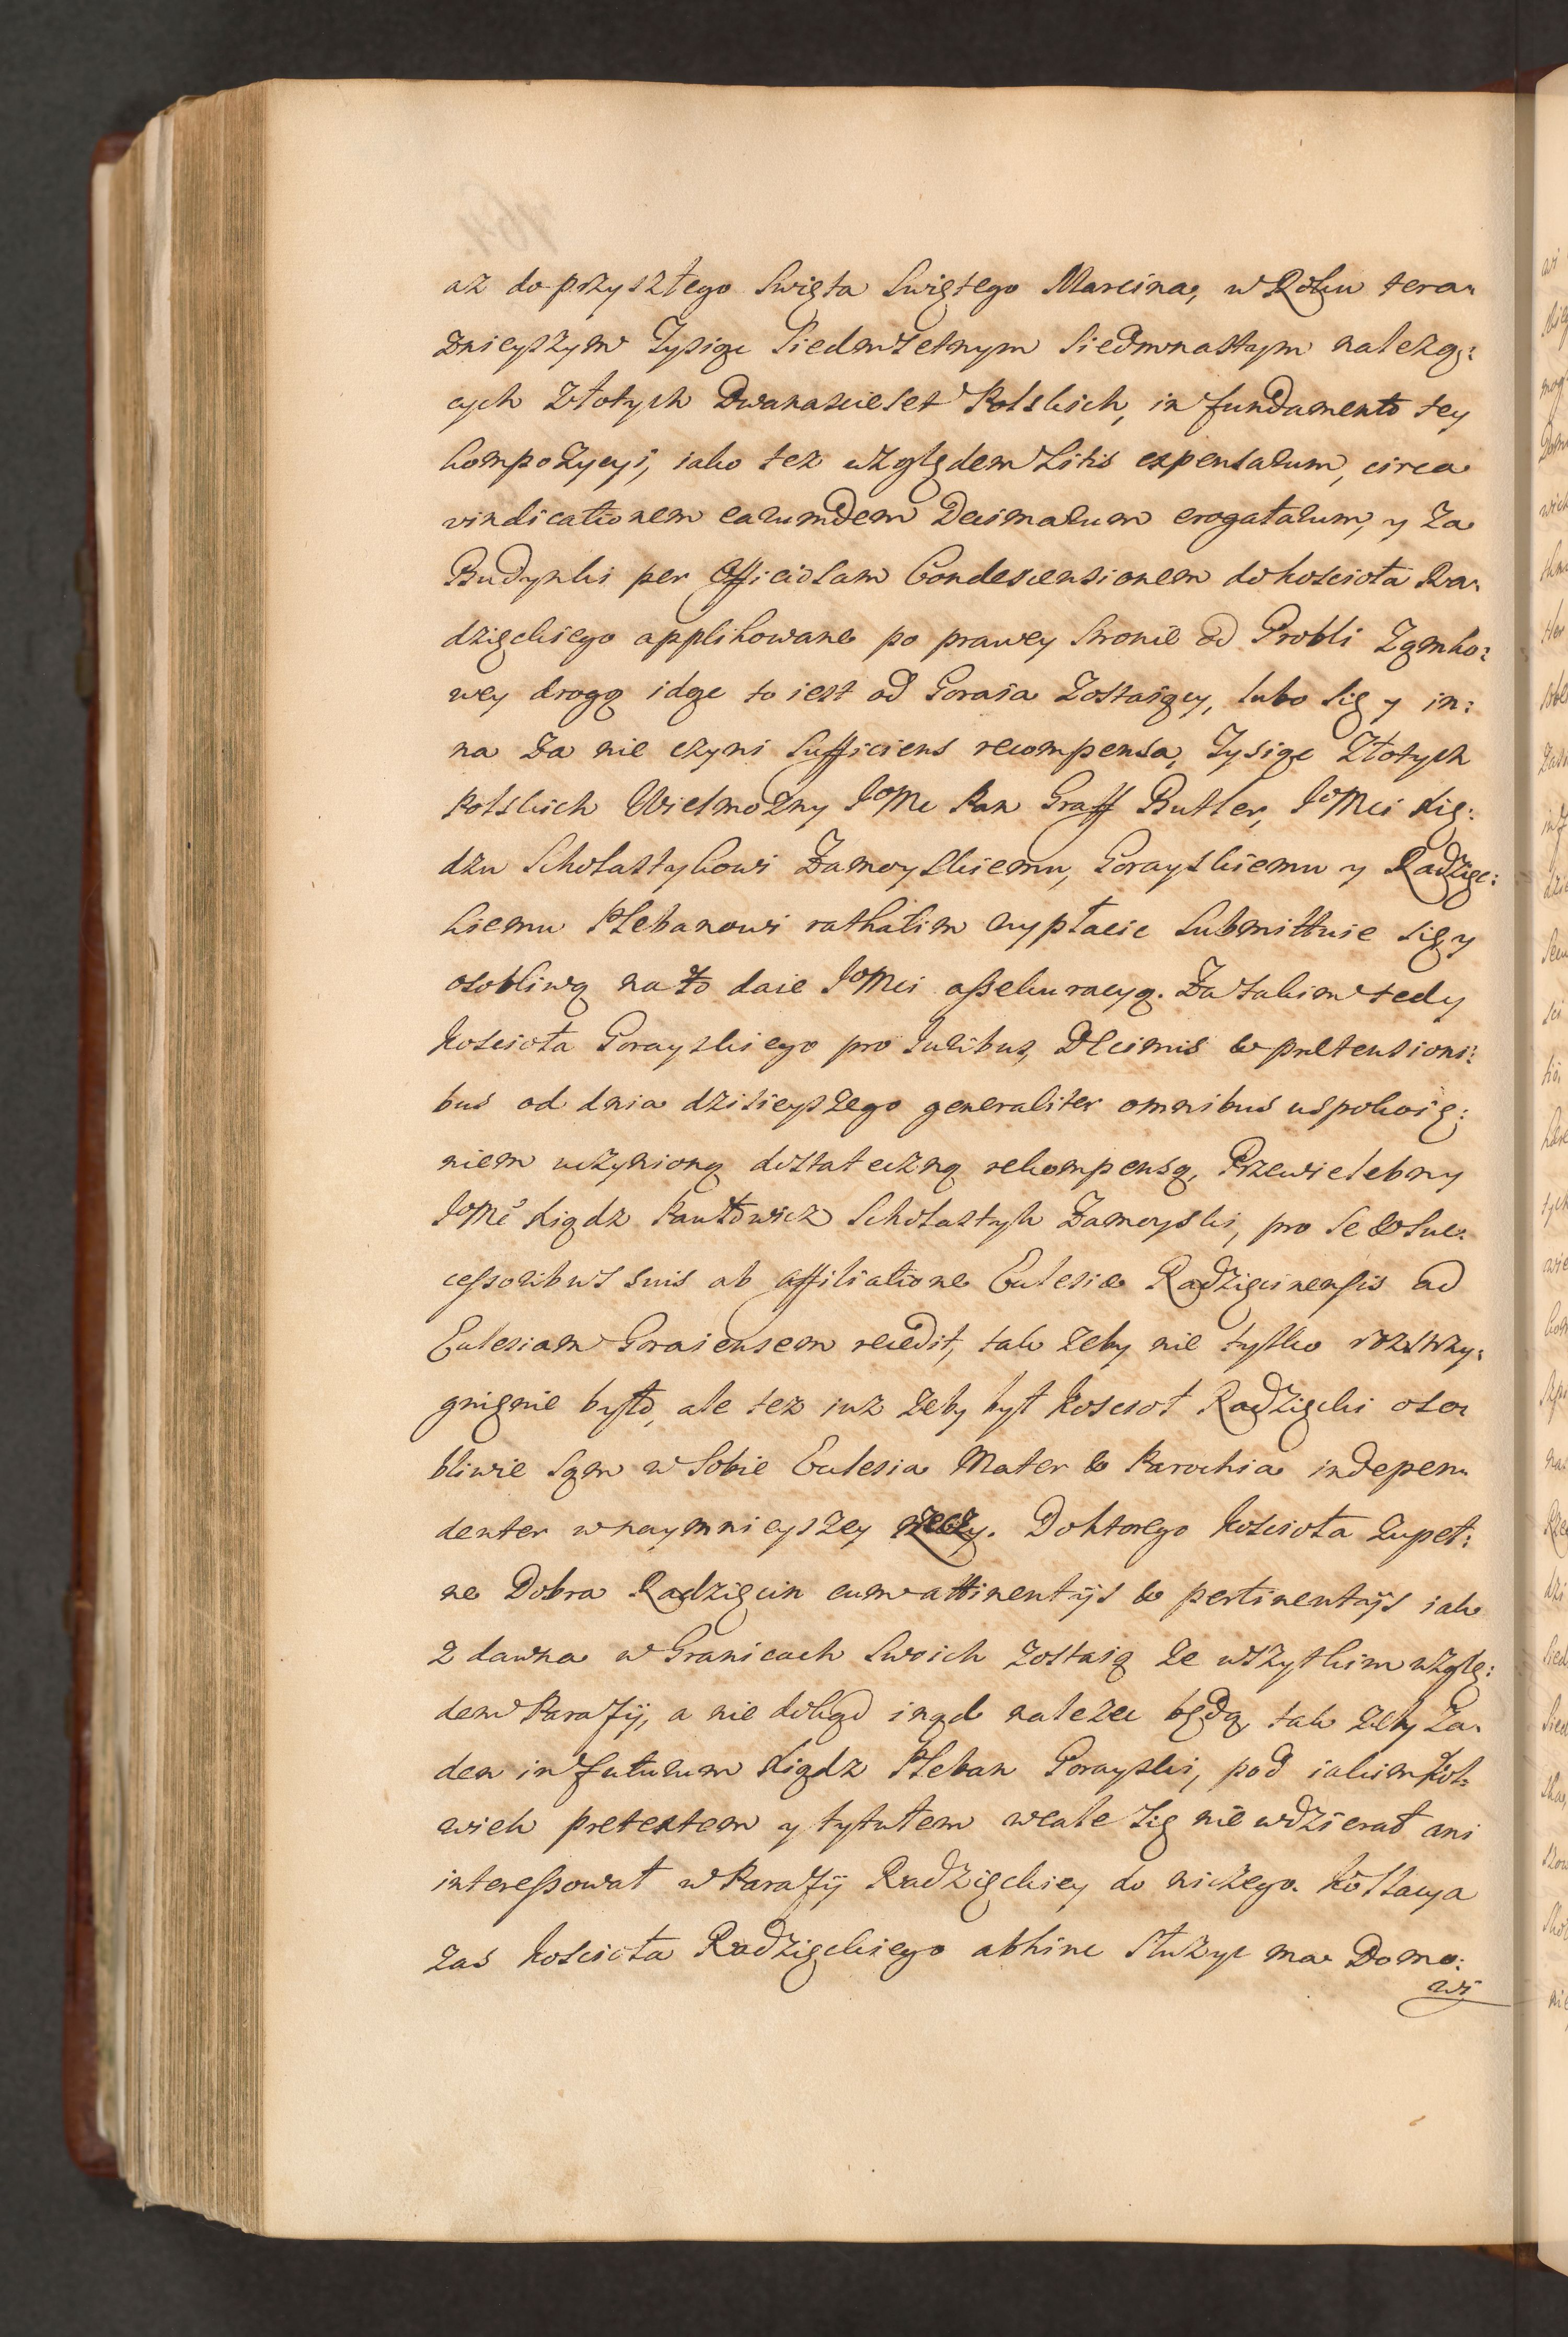 az do przyszłego Swięta Swiętego Marcina, w Roku tera:
znieyszym Tysiąc Siedmsetnym Siedmnastym nalezą:
cych Złotych Dwanascieset Polskich, in fundamento tey
kompozycyi, iako tez względem Litis expensarum, circa
vindicationem earumdem Decimarum erogatarum, y Za
Budynki per Officiosam Condescensionem do koscioła Ra:
dzięckiego applikowane po prawey Stronie od Grobli
wey drogą idąc to iest od Goraia Zostaiący, lubo Się y in:
na Za nie czyni Sufficiens recompensa, Tysiąc Złotych
Polskich Wielmozny JoMc Pan Graff Butler, JoMci Xię:
dzu Scholastykowi Zamoyskiemu, Gorayskiemu y Radzięc:
kiemu Plebanowi rathatim wypłacic Submittuie się y
osobliwą na to daie JoMci assekuracyą. Za takim tedy
Koscioła Gorayskiego pro Juribus, Decimis & prætensioni:
bus od dnia dzisieyszego generaliter omnibus uspokoię:
niem uczynioną dostateczną rekompensą, Przewielebny
JoMc Xiądz Pawłowicz Scholastyk Zamoyski, pro Se & Suc:
cessoribus suis ab affiliatione Eclesiæ Radzięcinensis ad
Eclesiam Goraiensem recedit, tak zeby nie tylko rozstrzy:
gnięnie było, ale tez iuz zeby był Koscioł Radzięcki oso:
bliwie Sąm w Sobie Eclesia Mater & Parochia indepen:
denter w naymnieyszey rzeczy. Do ktorego Kosciola Zupeł:
ne Dobra Radzięcin cum attinentijs & pertinentijs iak
z dawna w Granicach Swoich zostaią ze wszytkim wzglę:
dem Parafij, a nie dokąd inąd nalezec będą, tak zeby Za:
den in futurum Xiądz Pleban Gorayski, pod iakimkol:
wiek pretextem y tytułem wcale Się nie wdzierał ani
interessował w Parafij Radzięckiey do niczego. Kollacya
zas Kosciola Radzięckiego abhinc Słuzyc ma Domo:
wi